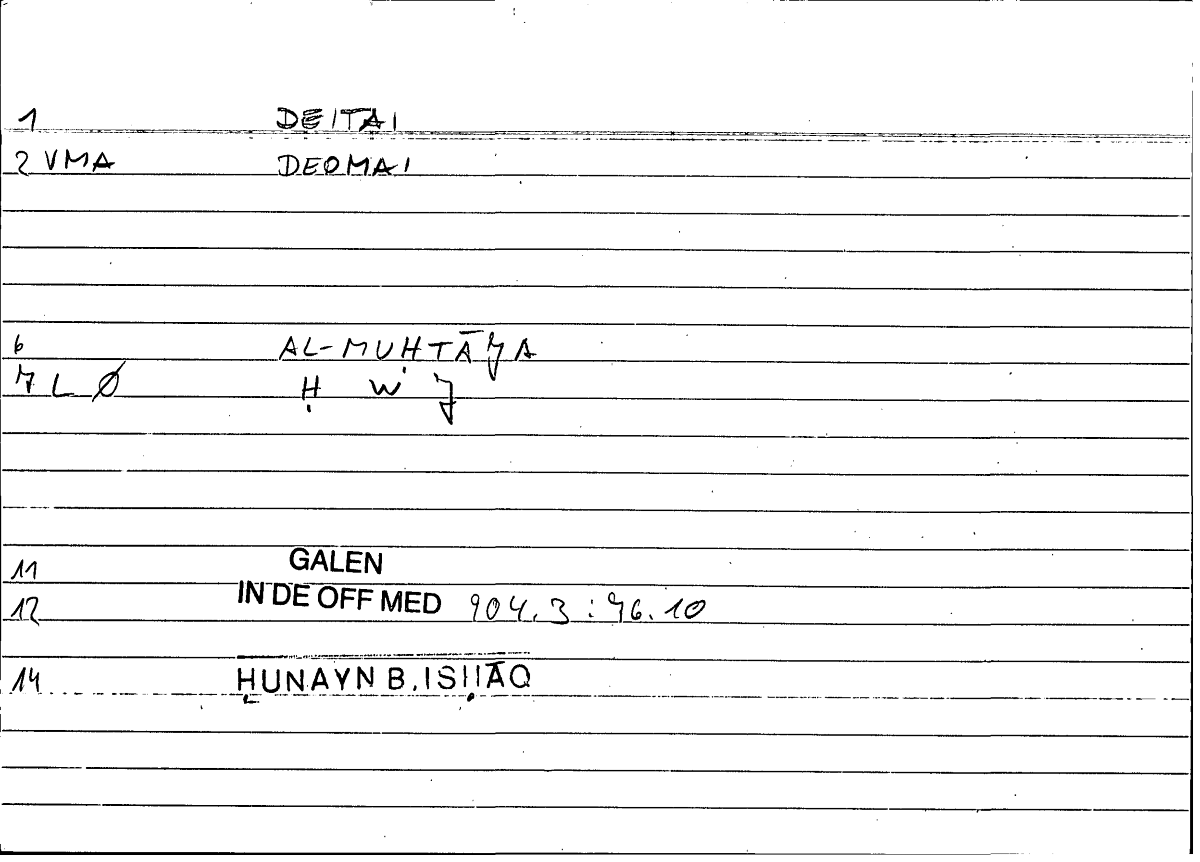 1 DEITAI
2 VMA DEOMAI
6 AL-MUHTĀJA
7 L Ø Ḥ W J
11 GALEN
12 IN DE OFF MED 904.3 : 96.10
14 ḤUNAYN B. ISḤĀQ